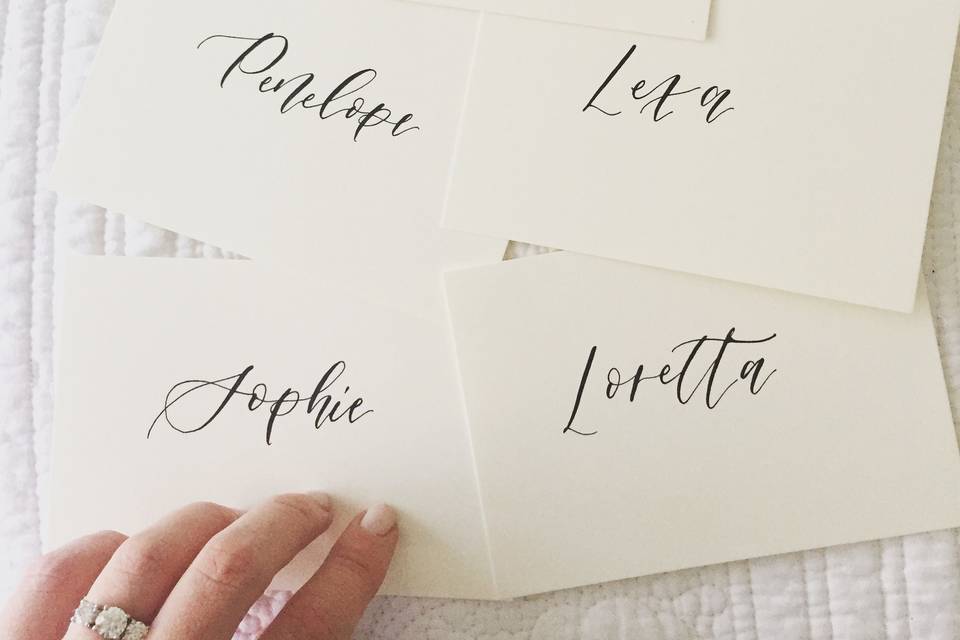 Penelope
Lexa
Sophie
Loretta